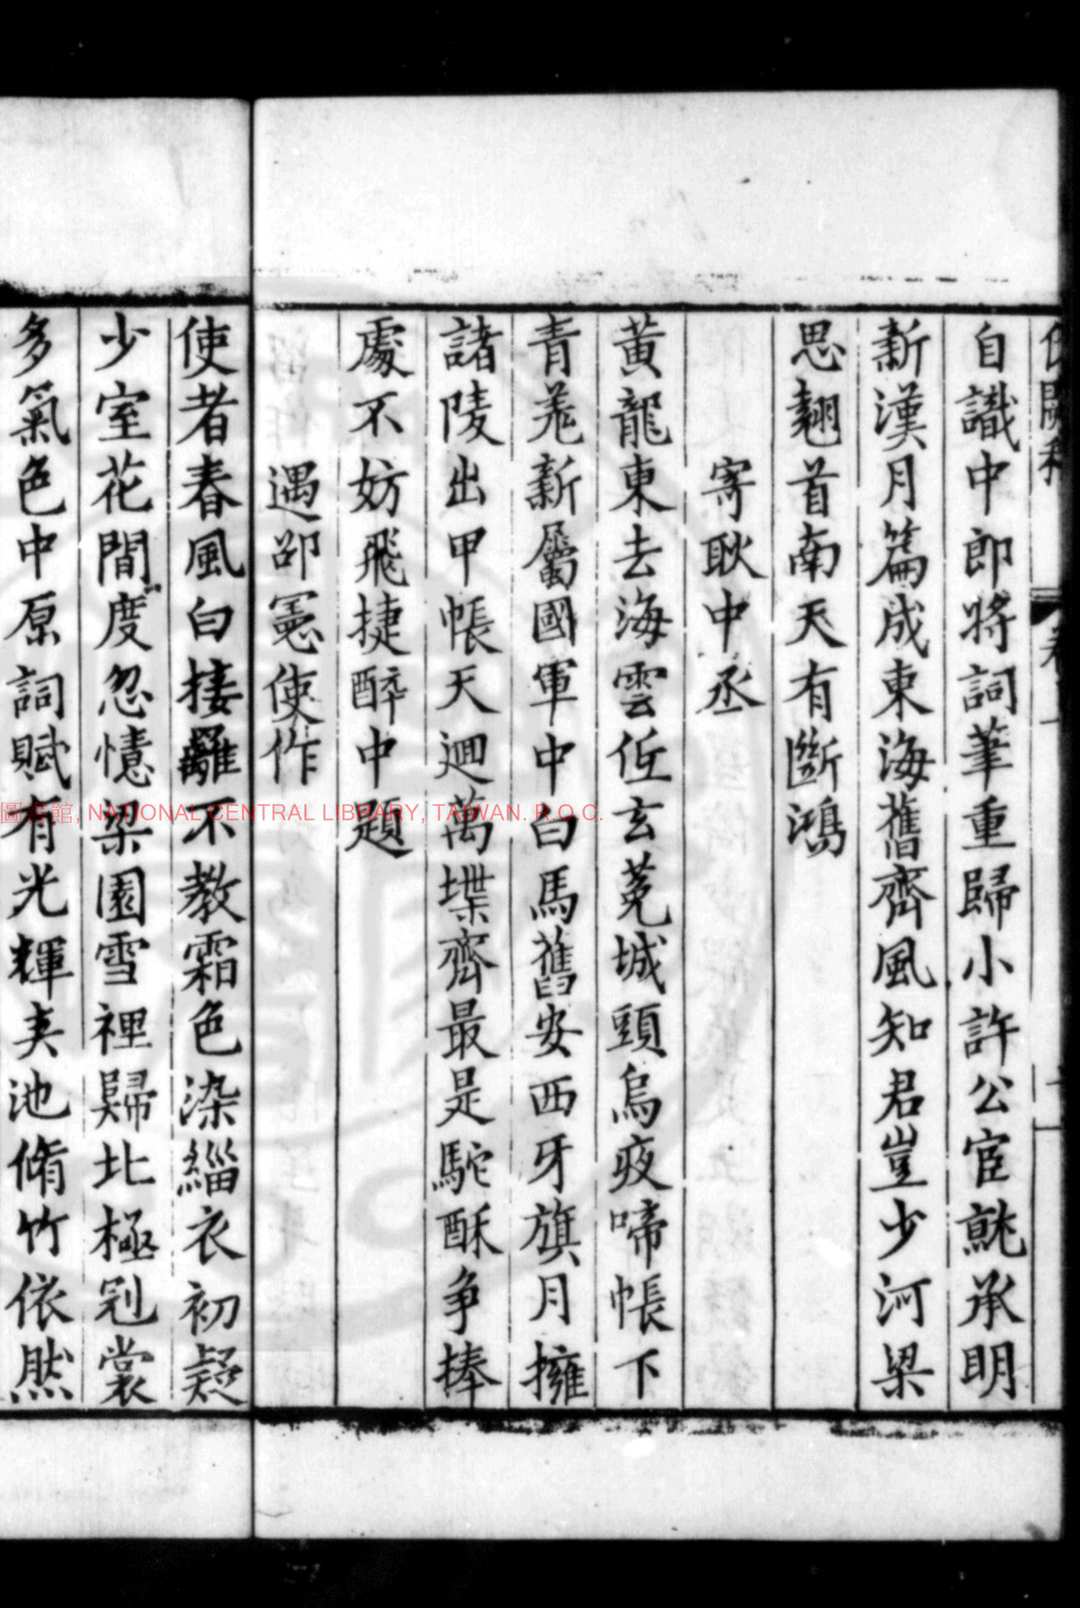 自識中郎將詞筆重歸小許公宦就承明
新漢月篇成東海舊齊風知君豈少河梁
思翹首南天有斷鴻
寄耿中丞
黃龍東去海雲低玄菟城頭烏夜啼帳下
青羗新屬國軍中白馬舊安西牙旗月擁
諸陵出甲帳天迴萬堞齊最是駝酥爭捧
處不妨飛捷醉中題
遇邵憲使作
使者春風白接䍦不教霜色染緇衣初疑
少室花間度忽憶梁園雪裡歸北極冠裳
多氣色中原詞賦有光輝夾池脩竹依然
圖書館, NATIONAL CENTRAL LIBRARY, TAIWAN. R.O.C.